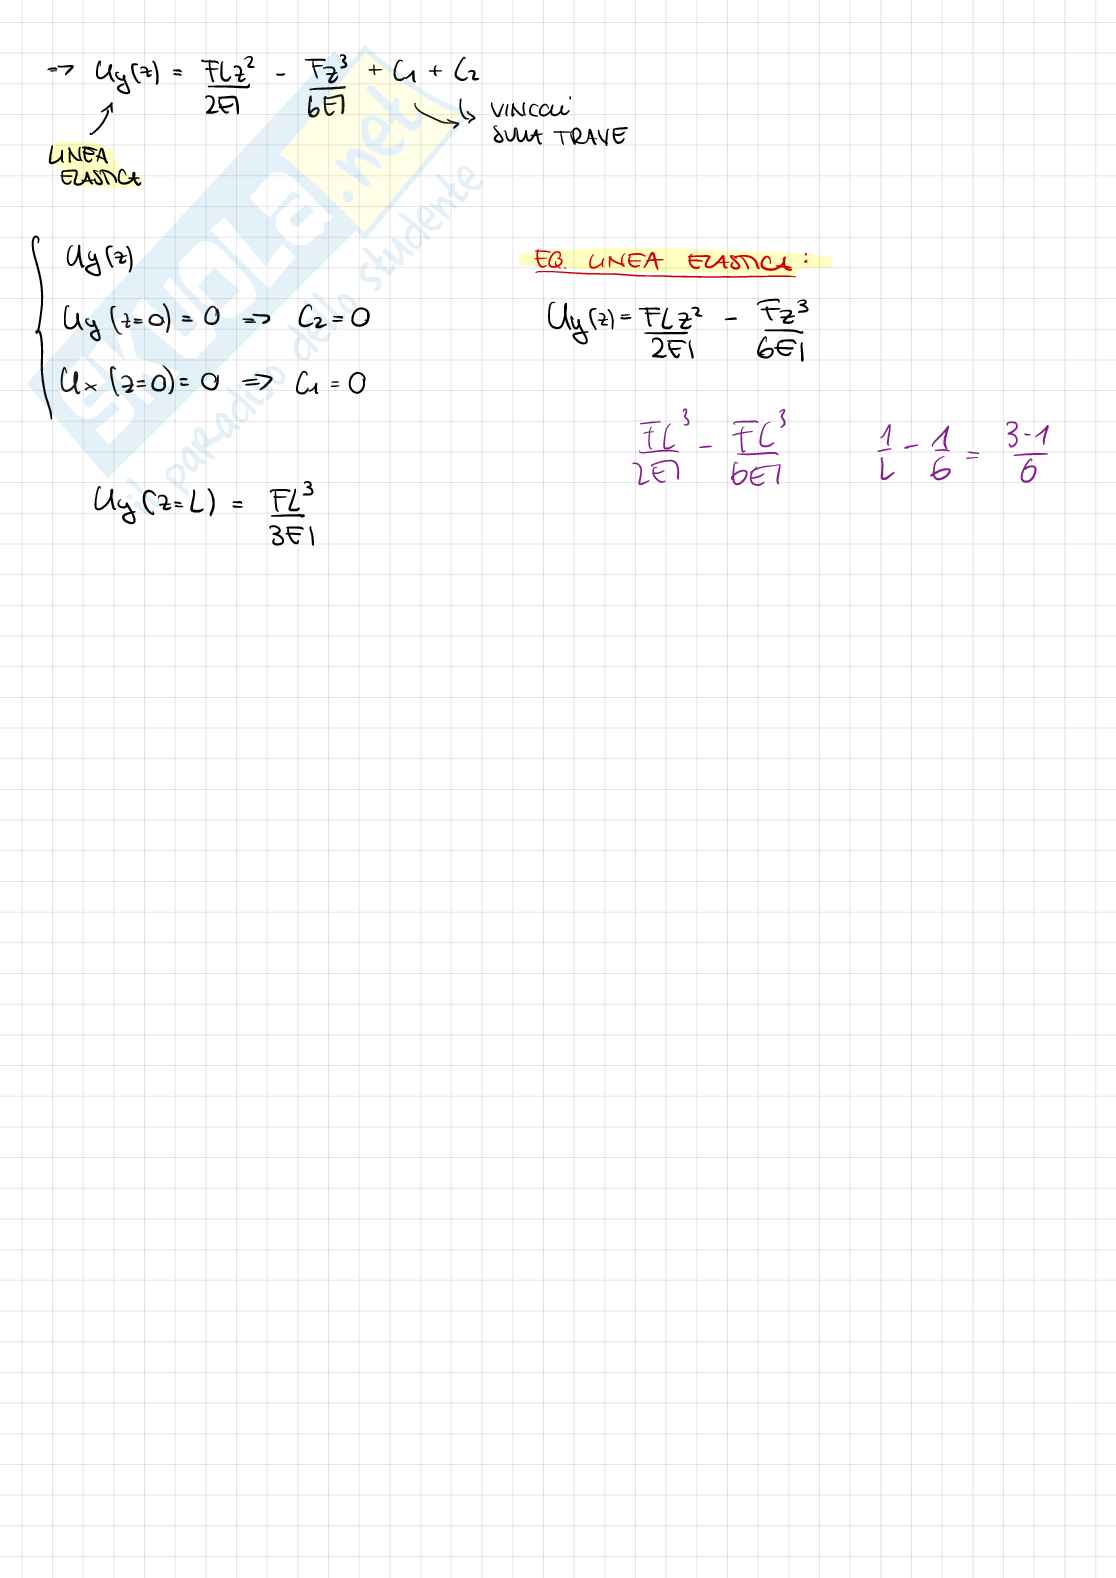 → Uy(z) = FLz²/2EI - Fz³/6EI + C₁ + C₂
VINCOLI
SULLA TRAVE
LINEA
ELASTICA
Uy(z)
Uy(z=0)=0 => C₂=0
Ux(z=0)=0 => C₁=0
EQ. LINEA ELASTICA:
Uy(z)= FLz²/2EI - Fz³/6EI
FL³/2EI - FL³/6EI
1/2 - 1/6 = 3-1/6
Uy(z=L) = FL³/3EI
SKUOLA.net
il paradiso dello studente